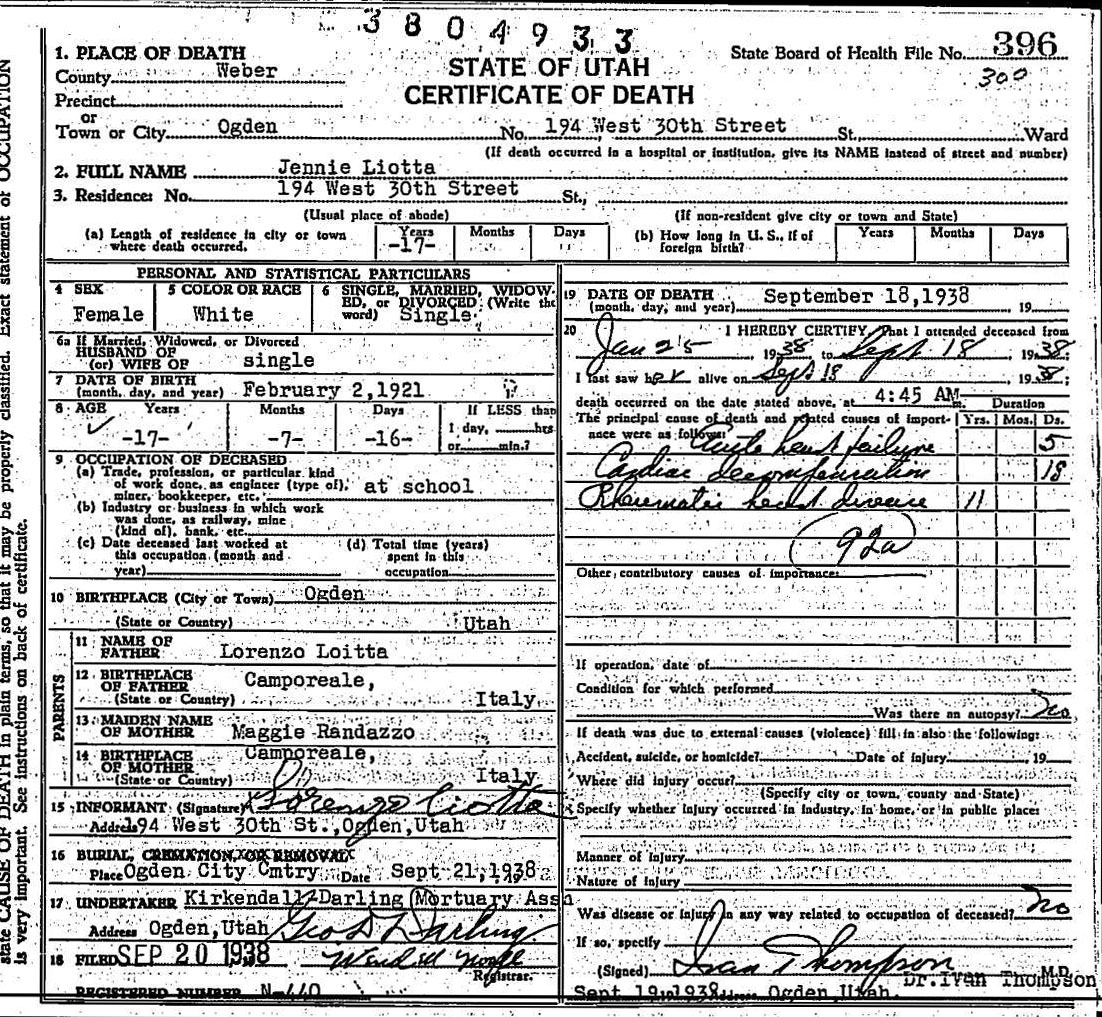 3804933
State Board of Health File No. 396
300
STATE OF UTAH
CERTIFICATE OF DEATH
1. PLACE OF DEATH
County Weber
Precinct
or
Town or City Ogden No. 194 West 30th Street St. Ward
(If death occurred in a hospital or institution, give its NAME instead of street and number)
2. FULL NAME Jennie Liotta
3. Residence: No. 194 West 30th Street St.,
(Usual place of abode) (If non-resident give city or town and State)
(a) Length of residence in city or town where death occurred. Years -17- Months Days
(b) How long in U. S., if of foreign birth? Years Months Days
PERSONAL AND STATISTICAL PARTICULARS
4 SEX Female
5 COLOR OR RACE White
6 SINGLE, MARRIED, WIDOWED, or DIVORCED (Write the word) Single
6a If Married, Widowed, or Divorced
HUSBAND OF
(or) WIFE OF single
7 DATE OF BIRTH
(month, day, and year) February 2,1921
8 AGE Years -17- Months -7- Days -16- If LESS than 1 day, hrs or min.?
9 OCCUPATION OF DECEASED
(a) Trade, profession, or particular kind of work done, as engineer (type of), miner, bookkeeper, etc. at school
(b) Industry or business in which work was done, as railway, mine (kind of), bank, etc.
(c) Date deceased last worked at this occupation (month and year)
(d) Total time (years) spent in this occupation
10 BIRTHPLACE (City or Town) Ogden
(State or Country) Utah
PARENTS
11 NAME OF FATHER Lorenzo Loitta
12 BIRTHPLACE OF FATHER Camporeale,
(State or Country) Italy
13 MAIDEN NAME OF MOTHER Maggie Randazzo
14 BIRTHPLACE OF MOTHER Camporeale,
(State or Country) Italy
15 INFORMANT (Signature) Lorenzo Liotta
Address 194 West 30th St.,Ogden,Utah
16 BURIAL, CREMATION, OR REMOVAL
Place Ogden City Cmtry Date Sept 21,1938
17 UNDERTAKER Kirkendall-Darling Mortuary Assn
Address Ogden,Utah Geo D Darling
18 FILED SEP 20 1938 Wendell
Registrar.
REGISTERED NUMBER N-440
19 DATE OF DEATH
(month, day, and year) September 18,1938 19
20 I HEREBY CERTIFY, That I attended deceased from
Jan 25, 1938 to Sept 18, 1938;
I last saw her alive on Sept 18, 1938;
death occurred on the date stated above, at 4:45 AM m. Duration
The principal cause of death and related causes of importance were as follows: Yrs. Mos. Ds.
Acute heart failure 5
Cardiac decompensation 18
Rheumatic heart disease 11
92a
Other contributory causes of importance:
If operation, date of
Condition for which performed
Was there an autopsy? No
If death was due to external causes (violence) fill in also the following:
Accident, suicide, or homicide? Date of injury 19
Where did injury occur?
(Specify city or town, county and State)
Specify whether injury occurred in industry, in home, or in public place:
Manner of Injury
Nature of Injury
Was disease or injury in any way related to occupation of deceased? No
If so, specify
(Signed) Ivan Thompson M.D.
Dr.Ivan Thompson
Sept 19, 1938 Ogden Utah.
state CAUSE OF DEATH in plain terms, so that it may be properly classified. Exact statement of OCCUPATION
is very important. See instructions on back of certificate.